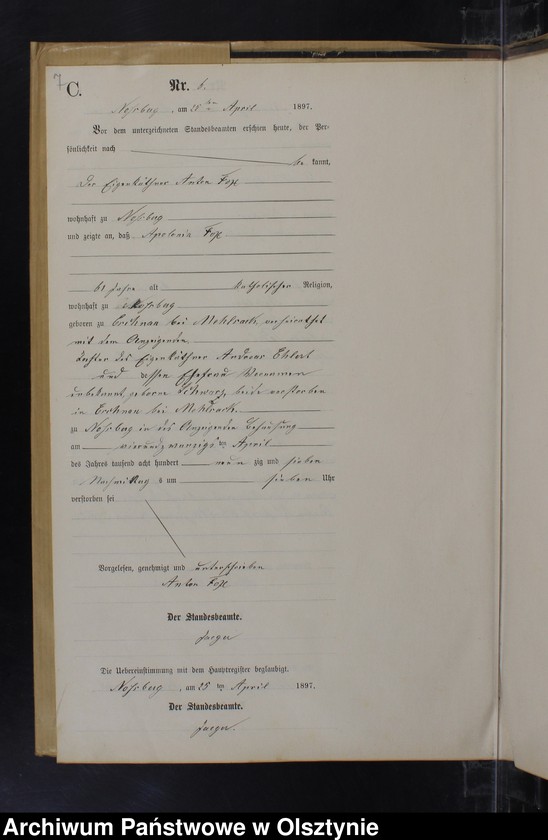 7
C.
Nr. 6.
Nossberg, am 25ten April 1897.
Vor dem unterzeichneten Standesbeamten erschien heute, der Per-
sönlichkeit nach
be kannt,
der Eigenkäthner Anton Fox
wohnhaft zu Nossberg
und zeigte an, daß Apolonia Fox
61 Jahre alt katholischer Religion,
wohnhaft zu Nossberg
geboren zu bei Mehlsack, verheirathet
mit dem Anzeigenden
Tochter des Eigenkäthner Andreas Ehlert
und dessen Ehefrau Vornamen
unbekannt, geborne Schwarz beide verstorben
in bei Mehlsack
zu Nossberg in des Anzeigenden Behausung
am vierundzwanzigsten April
des Jahres tausend acht hundert neun zig und sieben
Nachmittag s um sieben Uhr
verstorben sei
Vorgelesen, genehmigt und unterschrieben
Anton Fox
Der Standesbeamte.
Jaeger
Die Uebereinstimmung mit dem Hauptregister beglaubigt.
Nossberg, am 25 ten April 1897.
Der Standesbeamte.
Jaeger.
Archiwum Państwowe w Olsztynie